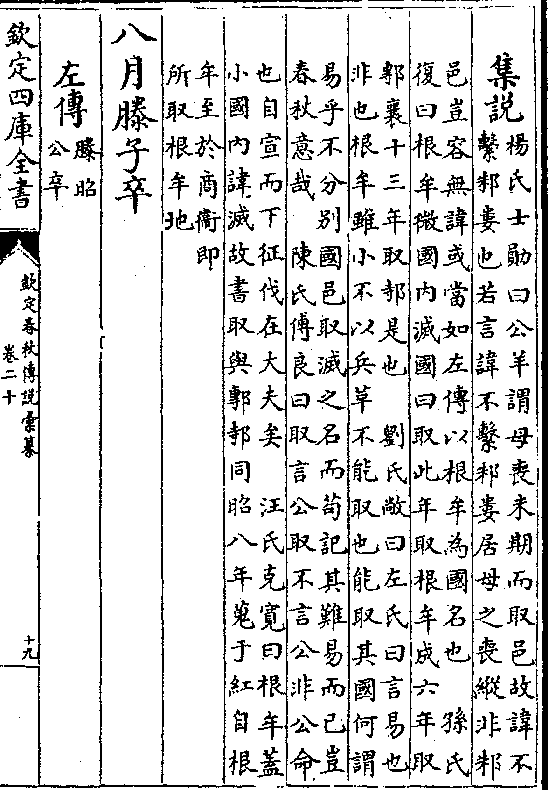 集説
楊氏士勛曰公羊謂母喪未期而取邑故諱不
繫邾婁也若言諱不繫邾婁居母之喪縱非邾
邑豈容無諱或當如左傳以根牟為國名也 孫氏
復曰根牟微國内滅國曰取此年取根牟成六年取
鄟襄十三年取邿是也 劉氏敞曰左氏曰言易也
非也根牟雖小不以兵革不能取也能取其國何謂
易乎不分别國邑取滅之名而苟記其難易而已豈
春秋意哉 陳氏傅良曰取言公取不言公非公命
也自宣而下征伐在大夫矣 汪氏克寛曰根牟蓋
小國内諱滅故書取與鄟邿同昭八年蒐于紅自根
年至於商衛即
所取根牟地
八月滕子卒
左傳
滕昭
公卒
欽定四庫全書
欽定春秋傳説彙纂
卷二十
十九